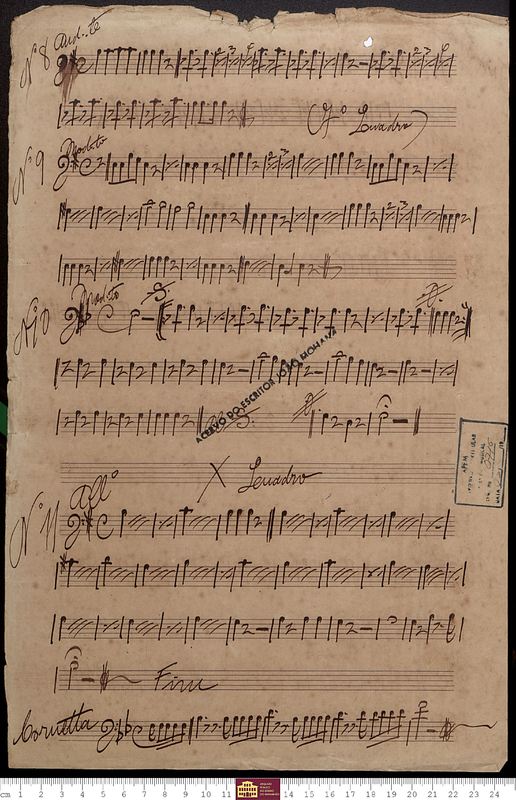 Nº 8 And.te
Quadro
Nº 9 Modto
Nº 10
ACERVO DO ESCRITOR JOÃO MOHANA
X Quadro
Nº 11 Allº
Fim
Cornetta
cm 1 2 3 4 5 6 7 8 9 10 11 14 15 16 17 18 19 20 21 22 23 24